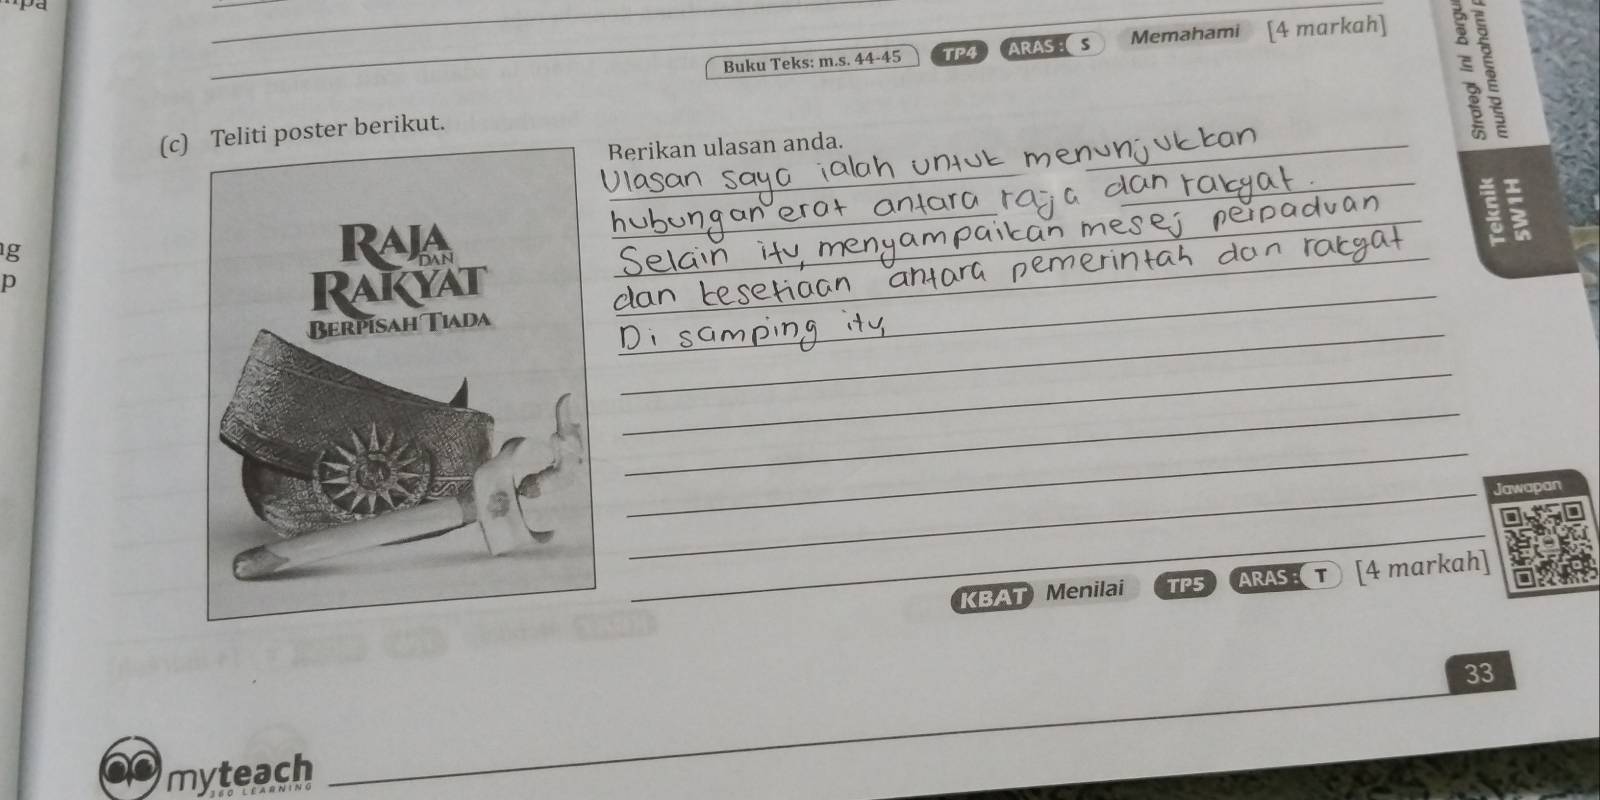 Buku Teks: m.s. 44-45 TP4 ARAS : S Memahami [4 markah]
(c) Teliti poster berikut.
RAJA
DAN
RAKYAT
BERPISAH TIADA
Berikan ulasan anda.
Ulasan saya ialah untuk menunjukkan
hubungan erat antara raja dan rakyat.
Selain itu, menyampaikan mesej perpaduan
dan kesetiaan antara pemerintah dan rakyat
Di samping itu,
KBAT Menilai TP5 ARAS : T [4 markah]
Strategi ini
murid memahami
Teknik
5W1H
Jawapan
33
myteach
360 LEARNING